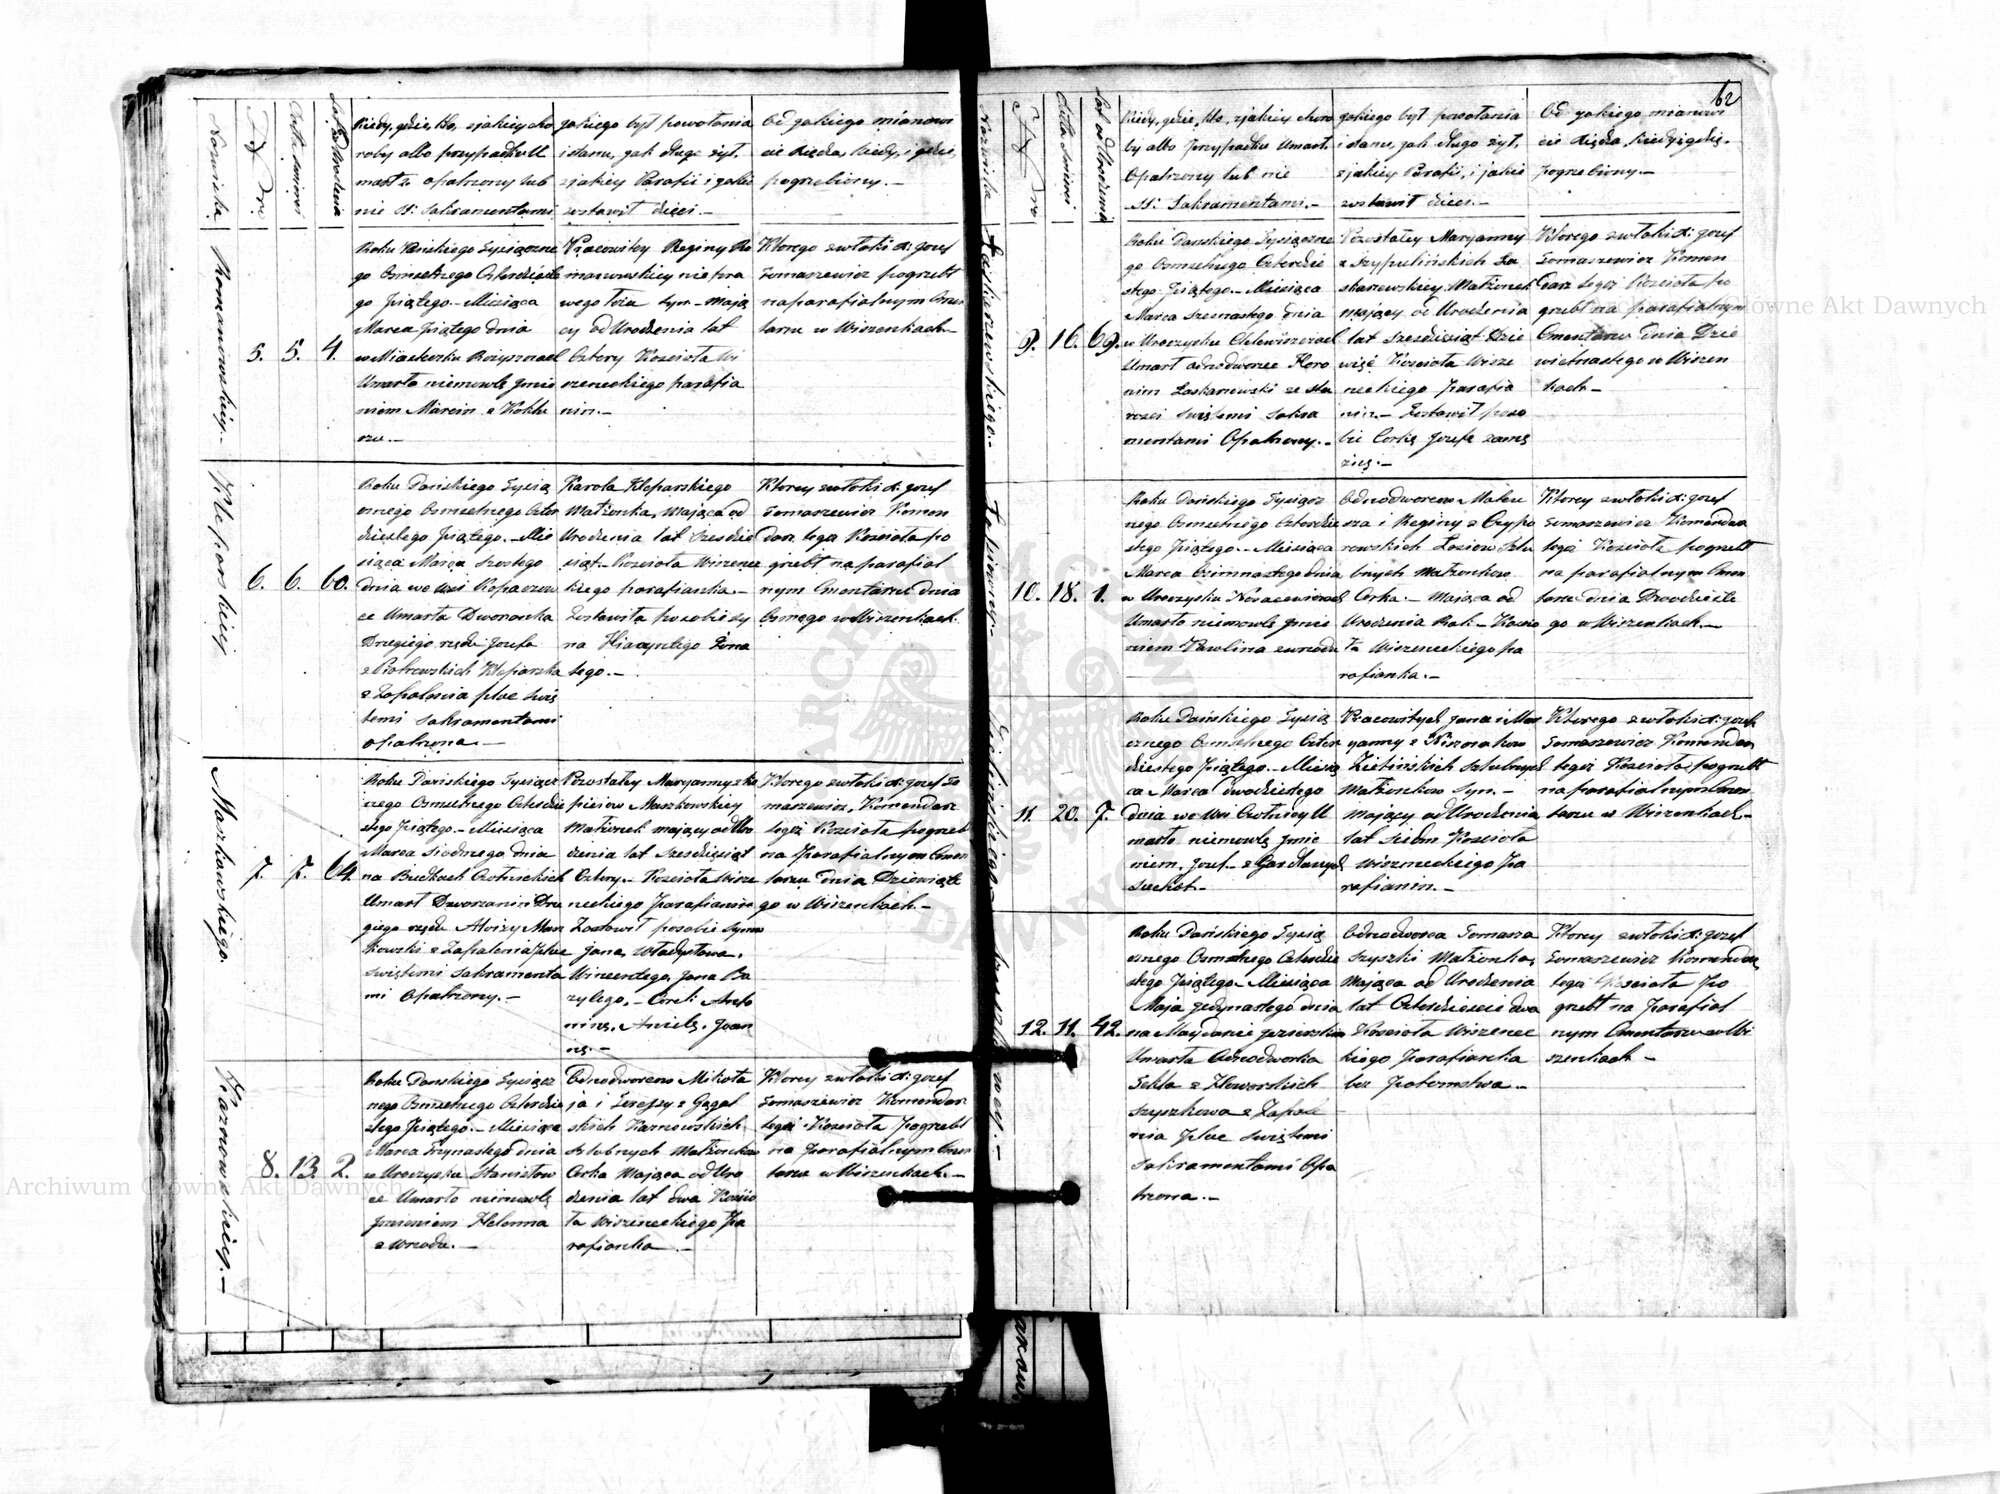 62
Nazwiska
Nro
Data śmierci
Lat od Urodzenia
Kiedy, gdzie, kto, z jakiey cho
roby albo przypadku U
marł opatrzony lub
nie SS: Sakramentami
jakiego był powołania
i stanu, jak długo żył,
z jakiey Parafii i jakie
zostawił dzieci.-
Od jakiego mianowi
cie Xiędza, kiedy, i gdzie,
pogrzebiony.-
Romanowskiey.-
5. 5. 4.
Roku Pańskiego Tysiączne
go Osmsetnego Czterdzieste
go Piątego.- Miesiąca
Marca piątego dnia
w Miasteczku Rożyszczach
Umarło niemowle Jmie
niem Marcin z Koklu
szu.-
Pracowitey Reginy Ro
manowskiey niepra
wego łoża Syn - mają
cy od Urodzenia lat
Cztery Kościoła Wi
szeneckiego parafia
nin.-
Którego zwłoki X: Jozef
Tomaszewicz pogrzebł
na parafialnym Cmen
tarzu w Wiszenkach.-
Kleparskiey
6. 6. 60.
Roku Pańskiego Tysią
cznego Osmsetnego Czter
dziestego Piątego.- Mie
siąca Marca Szostego
dnia we Wsi Kopaczow
ce Umarła Dworanka
Drugiego rzędu Jozefa
z Piotrowskich Kleparska
z Zapalenia płuc Świę
temi Sakramentami
opatrzona.-
Karola Kleparskiego
Małżonka, mająca od
Urodzenia lat Sześdzie
siąt.- Kościoła Wiszenec
kiego parafianka.-
Zostawiła po sobie Sy
na Hiacyntego Żona
tego.-
Ktorey zwłoki X: Jozef
Tomaszewicz Komen
darz tegoż Kościoła po
grzebł na parafial
nym Cmentarzu dnia
Osmego w Wiszenkach.
Markowskiego.
7. 7. 64.
Roku Pańskiego Tysiącz
nego Osmsetnego Czterdzie
stego Piątego.- Miesiąca
Marca Siodmego dnia
na Budkach Czołnickich
Umarł Dworzanin Dru
giego rzędu Aloizy Mar
kowski z Zapalenia płuc
Świętemi Sakramenta
mi Opatrzony.-
Pozostałey Maryanny z Ka
picow Markowskiey
Małżonek mający od Uro
dzenia lat Sześdziesiąt
Cztery.- Kościoła Wisze
neckiego Parafianin
Zostawił po sobie Synow
Jana, Władysława,
Wincentego, Jana Ba
zylego,- Corki Anto
ninę, Anielę, Joan
nę.-
Ktorego zwłoki X: Jozef To
maszewicz, Komendarz
tegoż Kościoła pogrzebł
na Parafialnym Cmen
tarzu dnia Dziewiąte
go w Wiszenkach.-
Karnowskiey.-
8. 13. 2.
Roku Pańskiego Tysiącz
nego Osmsetnego Czterdzie
stego Piątego.- Miesiąca
Marca Trzynastego dnia
w Uroczysku Stanisłow
ce Umarło niemowlę
Jmieniem Helenna
z Wrzodu.-
Odnodworcow Mikoła
ja i Terezyi z Gągal
skich Karnowskich
Szlubnych Małżonkow
Corka Mająca od Uro
dzenia lat dwa Kościo
ła Wiszeneckiego Pa
rafianka.-
Ktorey zwłoki X: Jozef
Tomaszewicz Komendarz
tegoż Kościoła Pogrzebł
na Parafialnym Cmen
tarzu w Wiszenkach.-
Nazwiska
Nro
Data śmierci
Lat od Urodzenia
Kiedy, gdzie, kto, z jakiey choro
by albo przypadku Umarł.
Opatrzony lub nie
SS: Sakramentami.-
jakiego był powołania
i stanu, jak długo żył,
z jakiey Parafii, i jakie
zostawił dzieci.-
Od jakiego mianowi
cie Xiędza, kiedy i gdzie.
pogrzebiony.-
Laskarzewskiego.-
9. 16. 69.
Roku Pańskiego Tysiączne
go Osmsetnego Czterdzie
stego Piątego.- Miesiąca
Marca Szesnastego dnia
w Uroczysku
Umarł Odnodworzec Hiero
nim Laskarzewski ze sta
rości Świętemi Sakra
mentami Opatrzony.-
Pozostałey Maryanny
z Szypulińskich La
skarzewskiey Małżonek
mający od Urodzenia
lat Sześdziesiąt Dzie
więć Kościoła Wisze
neckiego Parafia
nin.- Zostawił po so
bie Corkę Jozefę zamę
żną.-
Ktorego zwłoki X: Jozef
Tomaszewicz Komen
darz tegoż Kościoła po
grzebł na parafialnym
Cmentarzu Dnia Dzie
wietnastego w Wiszen
kach.-
10. 18. 1.
Roku Pańskiego Tysiącz
nego Osmsetnego Czterdzie
stego Piątego.- Miesiąca
Marca Ośmnastego dnia
w Uroczysku
Umarło niemowle Jmie
niem Pawlina z wrzodu
Odnodworcow Mateu
sza i Reginy z Czypo
rowskich Szlu
bnych Małżonkow
Corka.- Mająca od
Urodzenia Rok.- Kościo
ła Wiszeneckiego Pa
rafianka.-
Ktorey zwłoki X: Jozef
Tomaszewicz Komendarz
tegoż Kościoła pogrzebł
na parafialnym Cmen
tarzu dnia Dwudzieste
go w Wiszenkach.-
Zielińskiego.-
11. 20. 7.
Roku Pańskiego Tysią
cznego Osmsetnego Czter
dziestego Piątego.- Miesią
ca Marca dwudziestego
dnia we Wsi Czołnicy U
marło niemowle Jmie
niem Jozef.- z Gardlanych
Suchot.-
Pracowitych Jana i Mar
yanny z
Zielińskich Szlubnych
Małżonkow Syn.-
Mający od Urodzenia
lat Siedm Kościoła
Wiszneckiego Pa
rafianin.-
Ktorego zwłoki X: Jozef
Tomaszewicz Komendarz
tegoż Kościoła pogrzebł
na parafialnym Cmen
tarzu w Wiszenkach.-
Szyszkowey.-
12. 11. 42.
Roku Pańskiego Tysią
cznego Osmsetnego Czterdzie
stego Piątego.- Miesiąca
Maja Jedynastego dnia
na Maydanie Jezierskim
Umarła Odnodworka
Tekla z Jaworskich
Szyszkowa z Zapale
nia Płuc Świętemi
Sakramentami Opa
trzona.-
Odnodworca Tomasza
Szyszki Małżonka,
Mająca od Urodzenia
lat Czterdzieści dwa
Kościoła Wiszenec
kiego Parafianka
bez Potomstwa.-
Ktorey zwłoki X: Jozef
Tomaszewicz Komendarz
tegoż Kościoła Po
grzebł na Parafial
nym Cmentarzu w Wi
szenkach.-
Archiwum Główne Akt Dawnych
Archiwum Główne Akt Dawnych